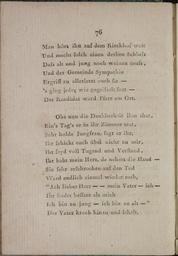 76
Man hört ihn auf dem Kirchhof
Und macht solch einen
Daß alt und jung noch weinen muß,
Und der Gemeinde Sympathie
Ergriff zu allererst auch Sie —
's ging jedes wie
Der Kandidat ward Pfarr am Ort.
Ob's nun die Dankbarkeit ihm that,
Ein's Tag's er in ihr Zimmer trat,
Sehr holde Jungfrau, sagt er ihr,
Ihr schickt euch übel nicht zu mir,
Ihr seyd voll Tugend und Verstand,
Ihr habt mein Herz, da nehmt die Hand —
Sie sehr erschrocken auf den Tod
Ward endlich einmal wieder roth,
"Ach lieber Herr — — mein Vater — ich —
Ihr findet bessere als mich
Ich bin zu jung — ich bin zu alt —"
Der Vater kroch hinzu und